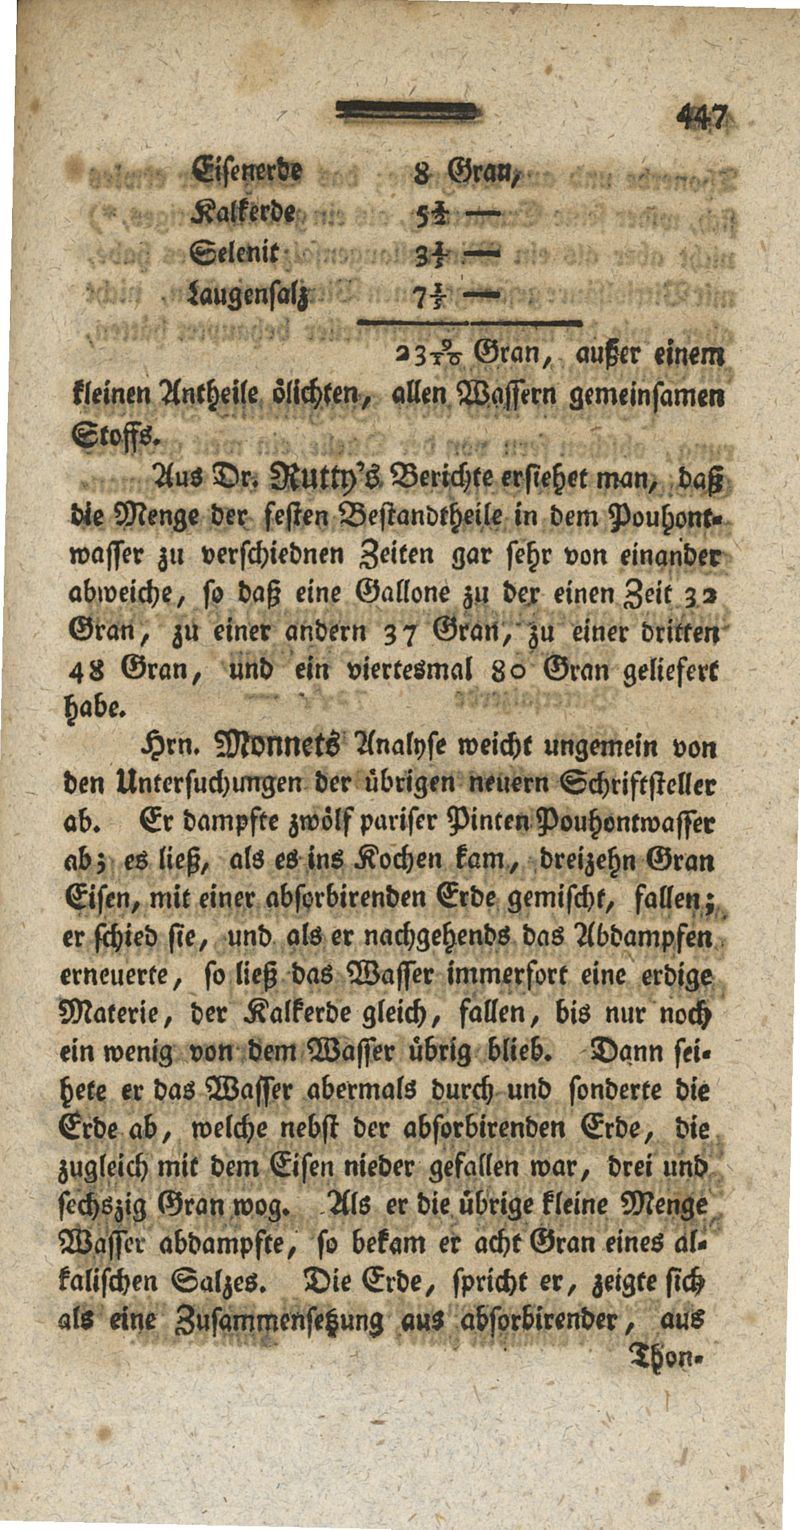 447
Eisenerde 8 Gran,
Kalkerde —
Selenit —
Laugensalz —
23 9/10 Gran, außer einem
kleinen Antheile ölichten, allen Wassern gemeinsamen
Stoffs.
Aus Dr. Rutty's Berichte ersiehet man, daß
die Menge der festen Bestandtheile in dem Pouhont-
wasser zu verschiednen Zeiten gar sehr von einander
abweiche, so daß eine Gallone zu der einen Zeit 32
Gran, zu einer andern 37 Gran, zu einer dritten
48 Gran, und ein viertesmal 80 Gran geliefert
habe.
Hrn. Monnets Analyse weicht ungemein von
den Untersuchungen der übrigen neuern Schriftsteller
ab. Er dampfte zwölf pariser Pinten Pouhontwasser
ab; es ließ, als es ins Kochen kam, dreizehn Gran
Eisen, mit einer absorbirenden Erde gemischt, fallen;
er schied sie, und als er nachgehends das Abdampfen
erneuerte, so ließ das Wasser immerfort eine erdige
Materie, der Kalkerde gleich, fallen, bis nur noch
ein wenig von dem Wasser übrig blieb. Dann sei-
hete er das Wasser abermals durch und sonderte die
Erde ab, welche nebst der absorbirenden Erde, die
zugleich mit dem Eisen nieder gefallen war, drei und
sechszig Gran wog. Als er die übrige kleine Menge
Wasser abdampfte, so bekam er acht Gran eines al-
kalischen Salzes. Die Erde, spricht er, zeigte sich
als eine Zusammensetzung aus absorbirender, aus
Thon-